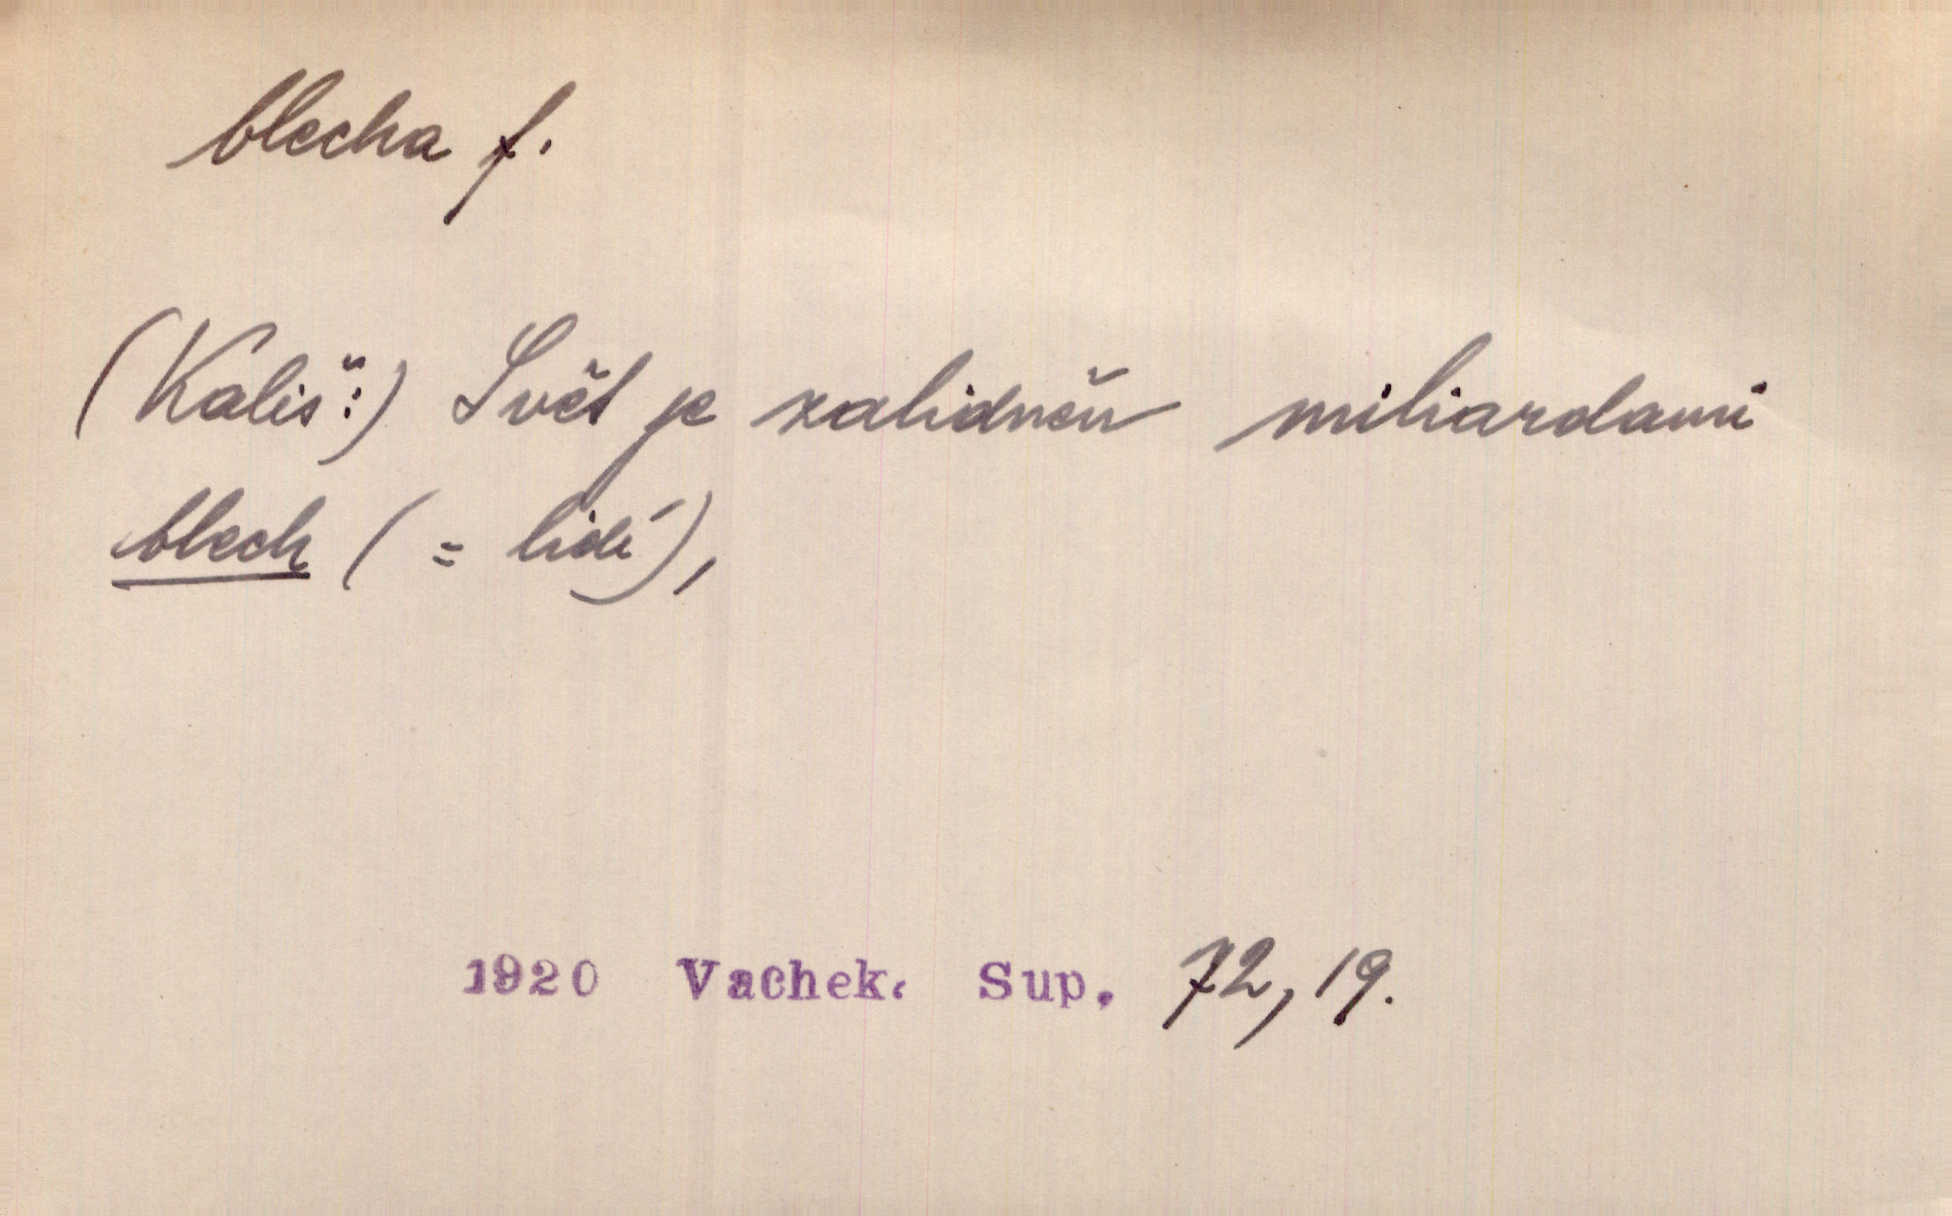 blecha f.
(Kališ:) Svět je zalidněn miliardami
blech (= lidí),
1920 Vachek. Sup. 72, 19.